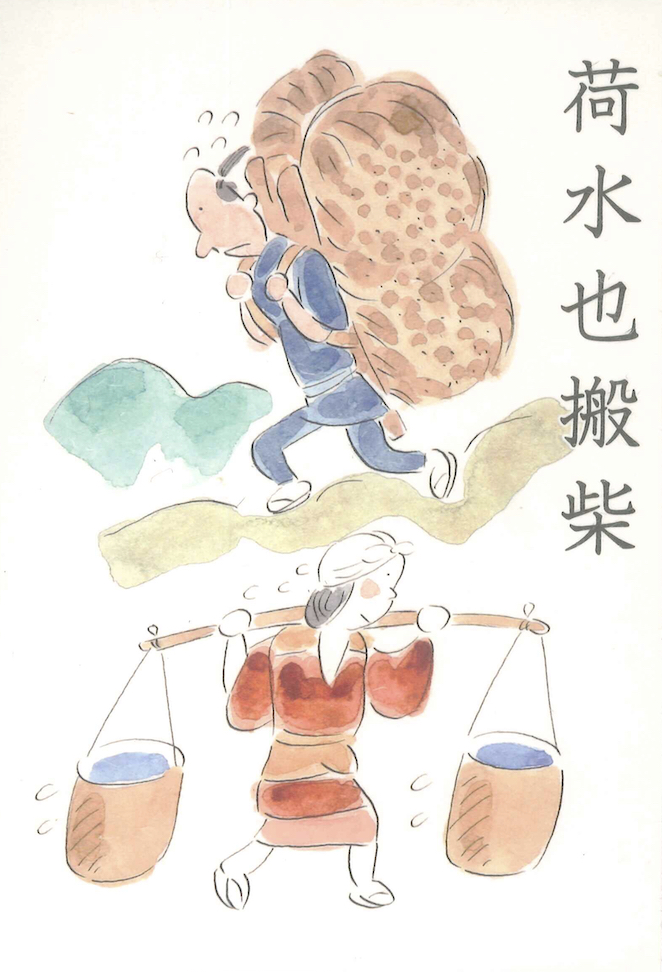 荷水也搬柴